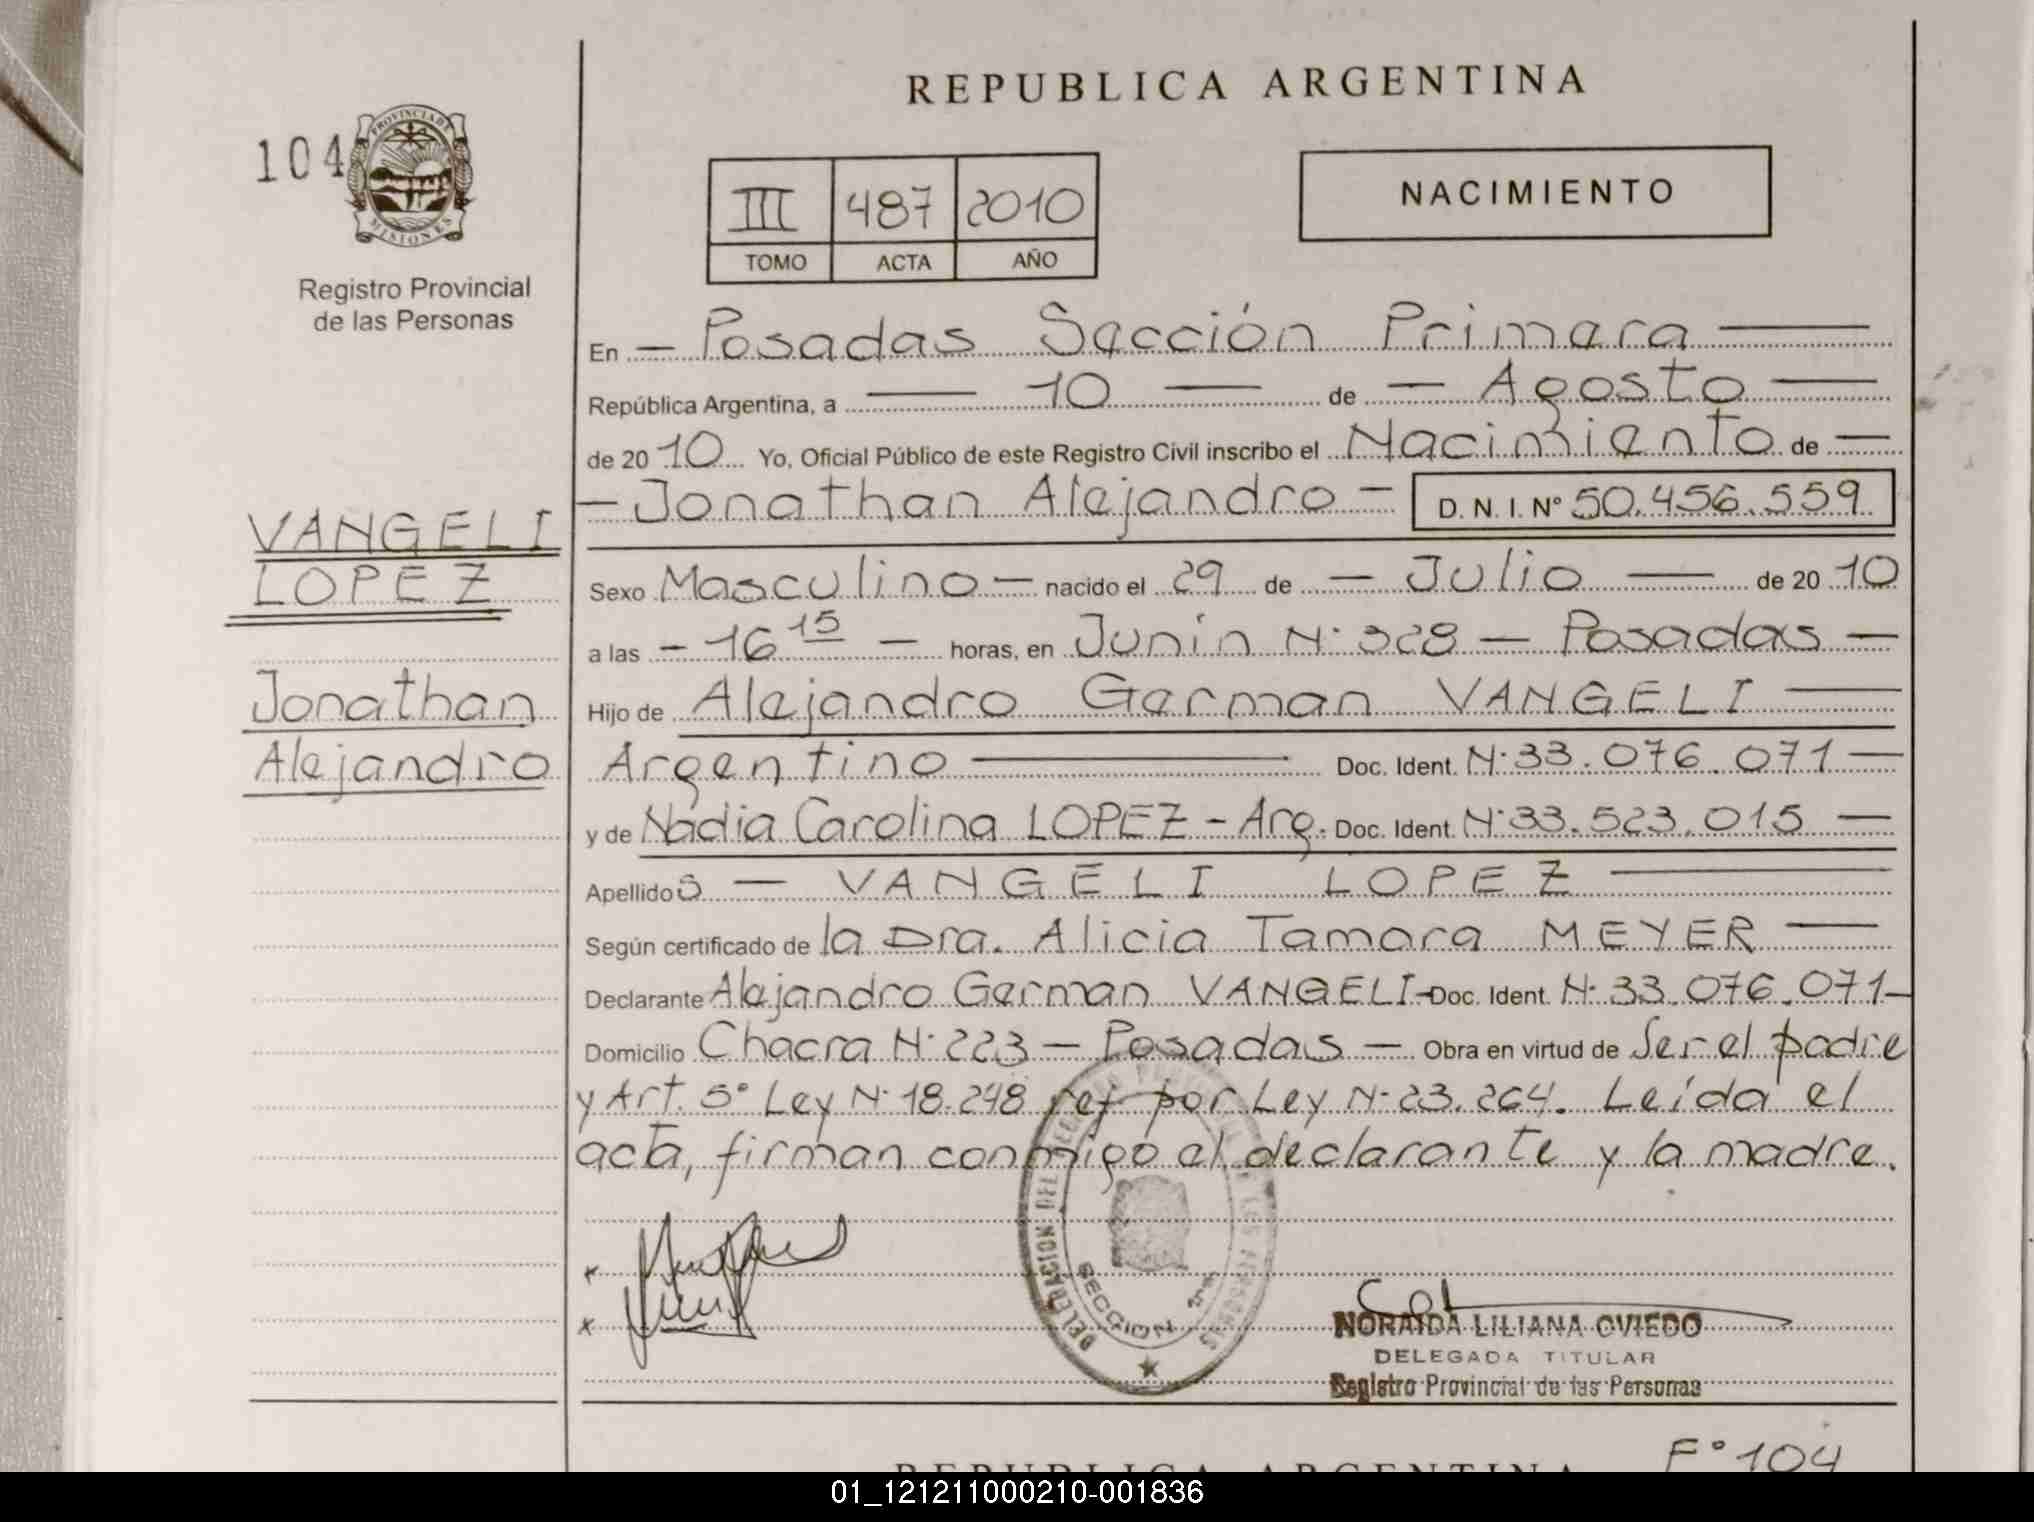 REPUBLICA ARGENTINA
104
PROVINCIA DE
MISIONES
Registro Provincial
de las Personas
III 487 2010
TOMO ACTA AÑO
NACIMIENTO
En — Posadas Sección Primera —
República Argentina, a — 10 — de — Agosto —
de 2010 Yo, Oficial Público de este Registro Civil inscribo el Nacimiento de —
— Jonathan Alejandro — D. N. I. Nº 50.456.559
VANGELI
LOPEZ
Jonathan
Alejandro
Sexo Masculino — nacido el 29 de — Julio — de 2010
a las — 16 15 — horas, en Junín N· 328 — Posadas —
Hijo de Alejandro German VANGELI —
Argentino — Doc. Ident. N· 33.076.071 —
y de Nadia Carolina LOPEZ - Arg. Doc. Ident. N· 33.523.015 —
Apellidos — VANGELI LOPEZ —
Según certificado de la Dra. Alicia Tamara MEYER —
Declarante Alejandro German VANGELI - Doc. Ident. N· 33.076.071 —
Domicilio Chacra N· 223 — Posadas — Obra en virtud de Ser el padre
y Art. 5º Ley N· 18.248 ref por Ley N· 23.264. Leída el
acta, firman conmigo el declarante y la madre.
x
x
DELEGACION DEL REGISTRO PROVINCIAL DE LAS PERSONAS
SECCION 1ª
NORAIDA LILIANA OVIEDO
DELEGADA TITULAR
Registro Provincial de las Personas
REPUBLICA ARGENTINA Fº 104
01_121211000210-001836